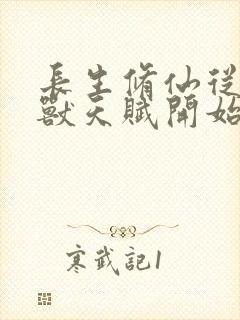 長生脩仙從
獸天賦開始
寒武記1